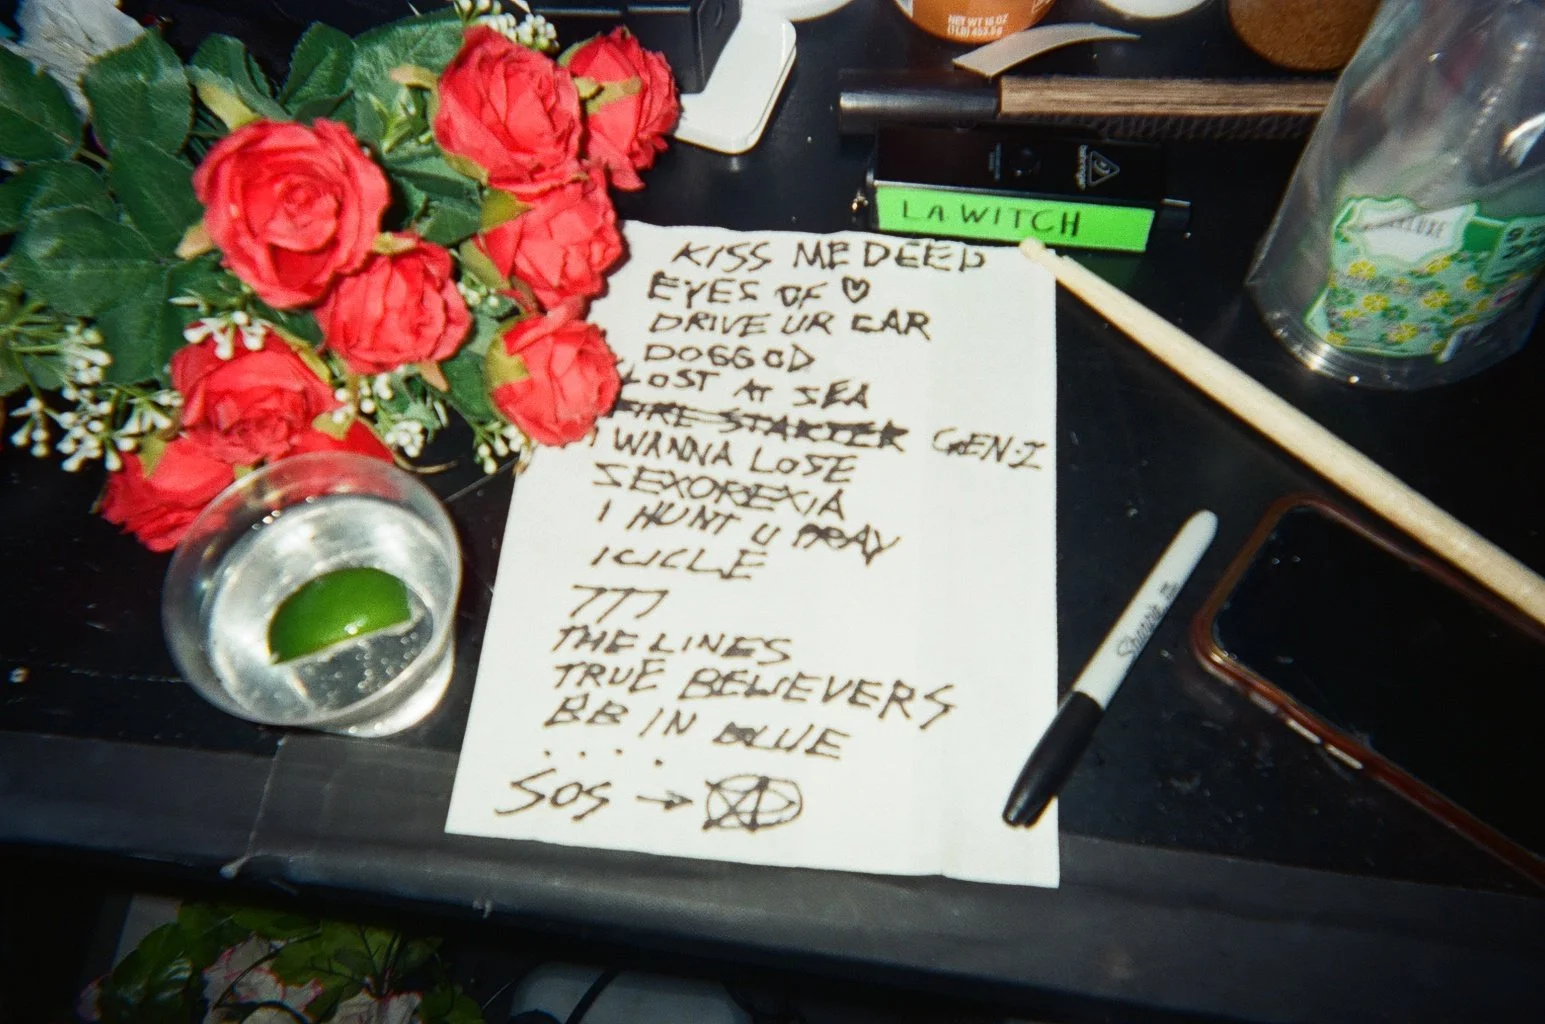 NET WT 16 OZ
(1LB) 453.6g
LA WITCH
KISS ME DEEP
EYES OF ♥
DRIVE UR CAR
DOGGOD
LOST AT SEA
FIRE STARTER GEN-Z
I WANNA LOSE
SEXOREXIA
I HUNT U PRAY
ICICLE
777
THE LINES
TRUE BELIEVERS
BB IN BLUE
. . . .
SOS → Ⓐ
Sharpie